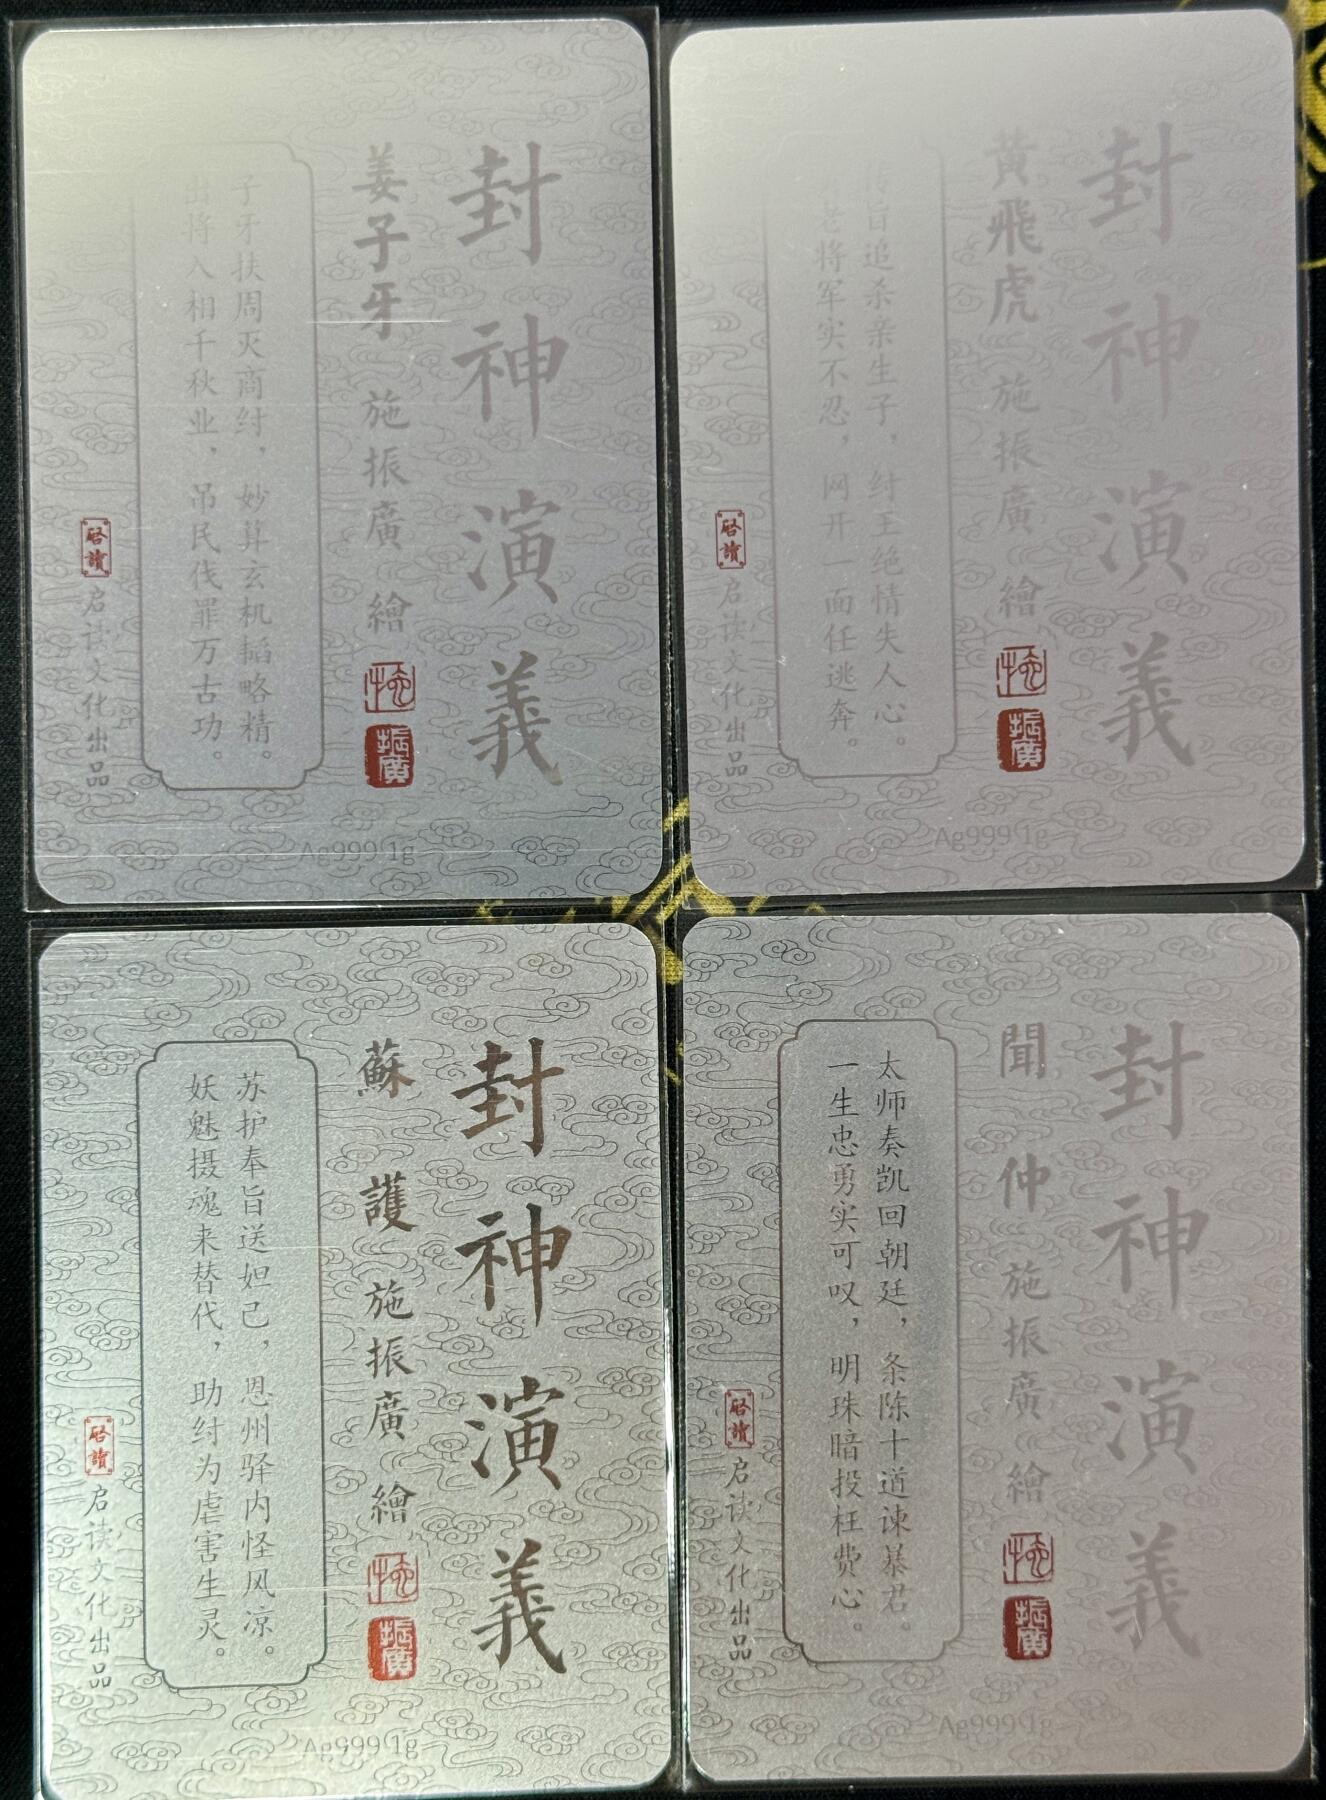 封神演義
姜子牙 施振廣 繪
振廣
子牙扶周灭商纣，妙算玄机韬略精。
出将入相千秋业，吊民伐罪万古功。
启读文化出品
啓讀
Ag999 1g
封神演義
黃飛虎 施振廣 繪
振廣
传旨追杀亲生子，纣王绝情失人心。
老将军实不忍，网开一面任逃奔。
启读文化出品
啓讀
Ag999 1g
封神演義
蘇護 施振廣 繪
振廣
苏护奉旨送妲己，恩州驿内怪风凉。
妖魅摄魂来替代，助纣为虐害生灵。
启读文化出品
啓讀
Ag999 1g
封神演義
聞仲 施振廣 繪
振廣
太师奏凯回朝廷，条陈十道谏暴君。
一生忠勇实可叹，明珠暗投枉费心。
启读文化出品
啓讀
Ag999 1g